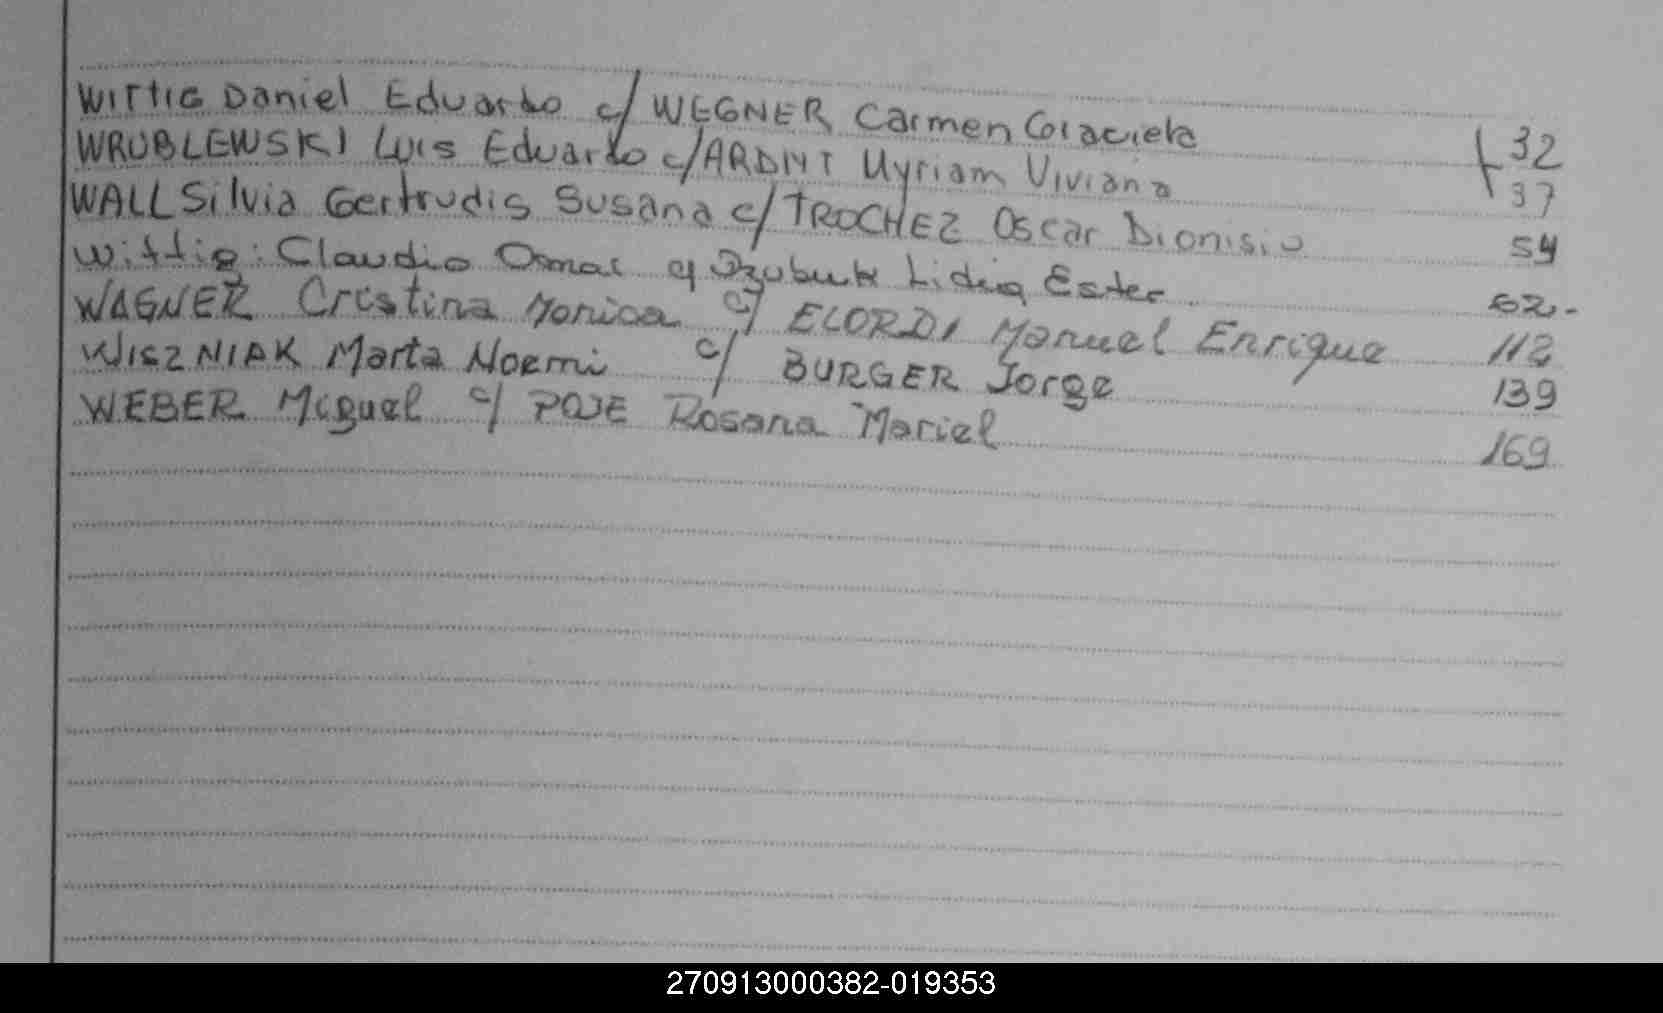 WITTIG Daniel Eduardo c/ WEGNER Carmen Graciela 32
WRUBLEWSKI Luis Eduardo c/ Myriam Viviana 37
WALL Silvia Gertrudis Susana c/ TROCHEZ Oscar Dionisio 54
Wittig: Claudio Omar c/ Lidia Ester. 62.-
WAGNER Cristina Monica c/ ELORDI Manuel Enrique 112
WISZNIAK Marta Noemi c/ BURGER Jorge 139
WEBER Miguel c/ POJE Rosana Mariel 169
270913000382-019353